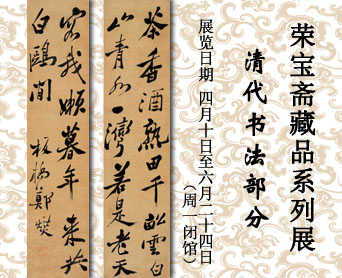 荣宝斋藏品系列展
清代书法部分
展览日期 四月十日至六月二十四日
（周一闭馆）
茶香酒熟田千畝雲白
山青水一灣若是老天
容我願暮年來共
白鷗閒 板橋鄭燮